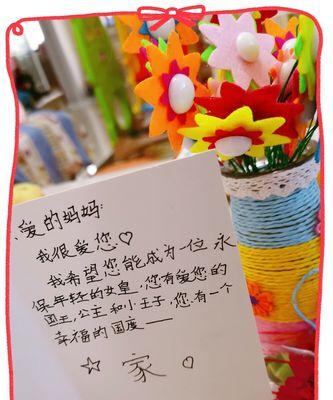 爱的妈妈:
我很爱您♡
我希望您能成为一位永
保年轻的女皇,您有爱您的
国王,公主和小王子,您有一个
幸福的国度——
☆ 家 ♡